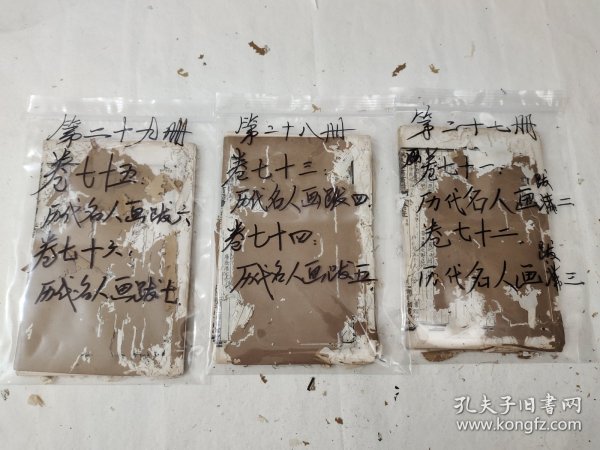 第二十九册
卷七十五:
历代名人画跋六
卷七十六:
历代名人画跋七
第二十八册
卷七十三:
历代名人画跋四
卷七十四:
历代名人画跋五
第二十七册
卷七十一:
历代名人画跋二
卷七十二:
历代名人画跋三
孔夫子旧书网
www.kongfz.com